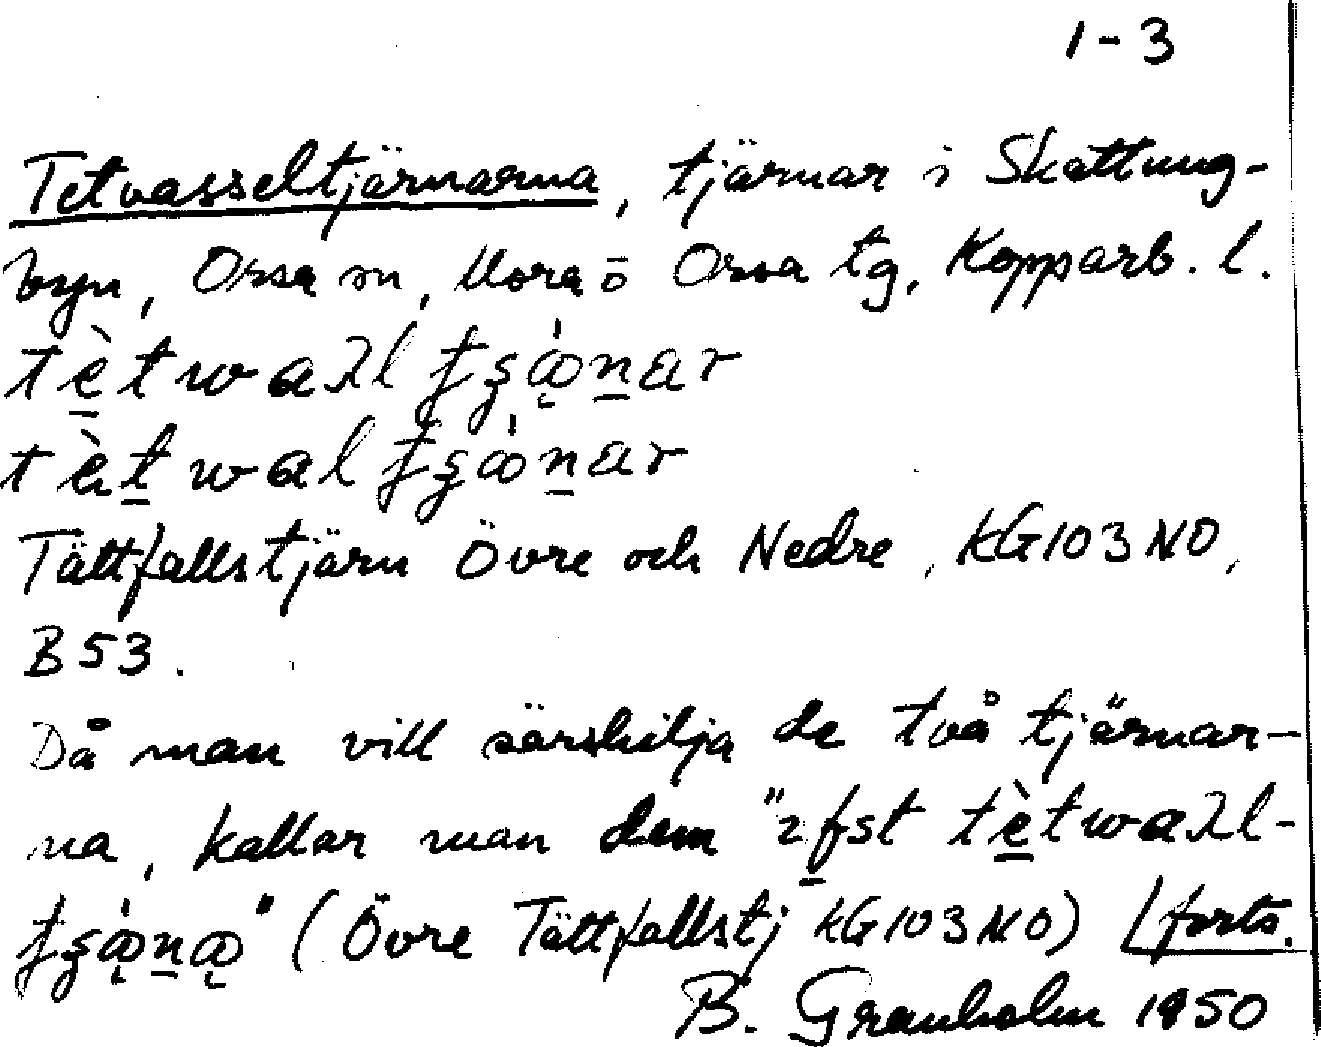 1-3
Tetvasseltjärnarna, tjärnar i Skattung-
byn, Orsa sn, Mora ö Orsa tg, Kopparb. l.
tètwaλl
tètwal
Tättfallstjärn Övre och Nedre, KG103NO,
B53.
Då man vill särskilja de två tjärnar-
na, kallar man dem tètwaλl-
(Övre Tättfallstj KG103NO) forts.
B. Granholm 1950